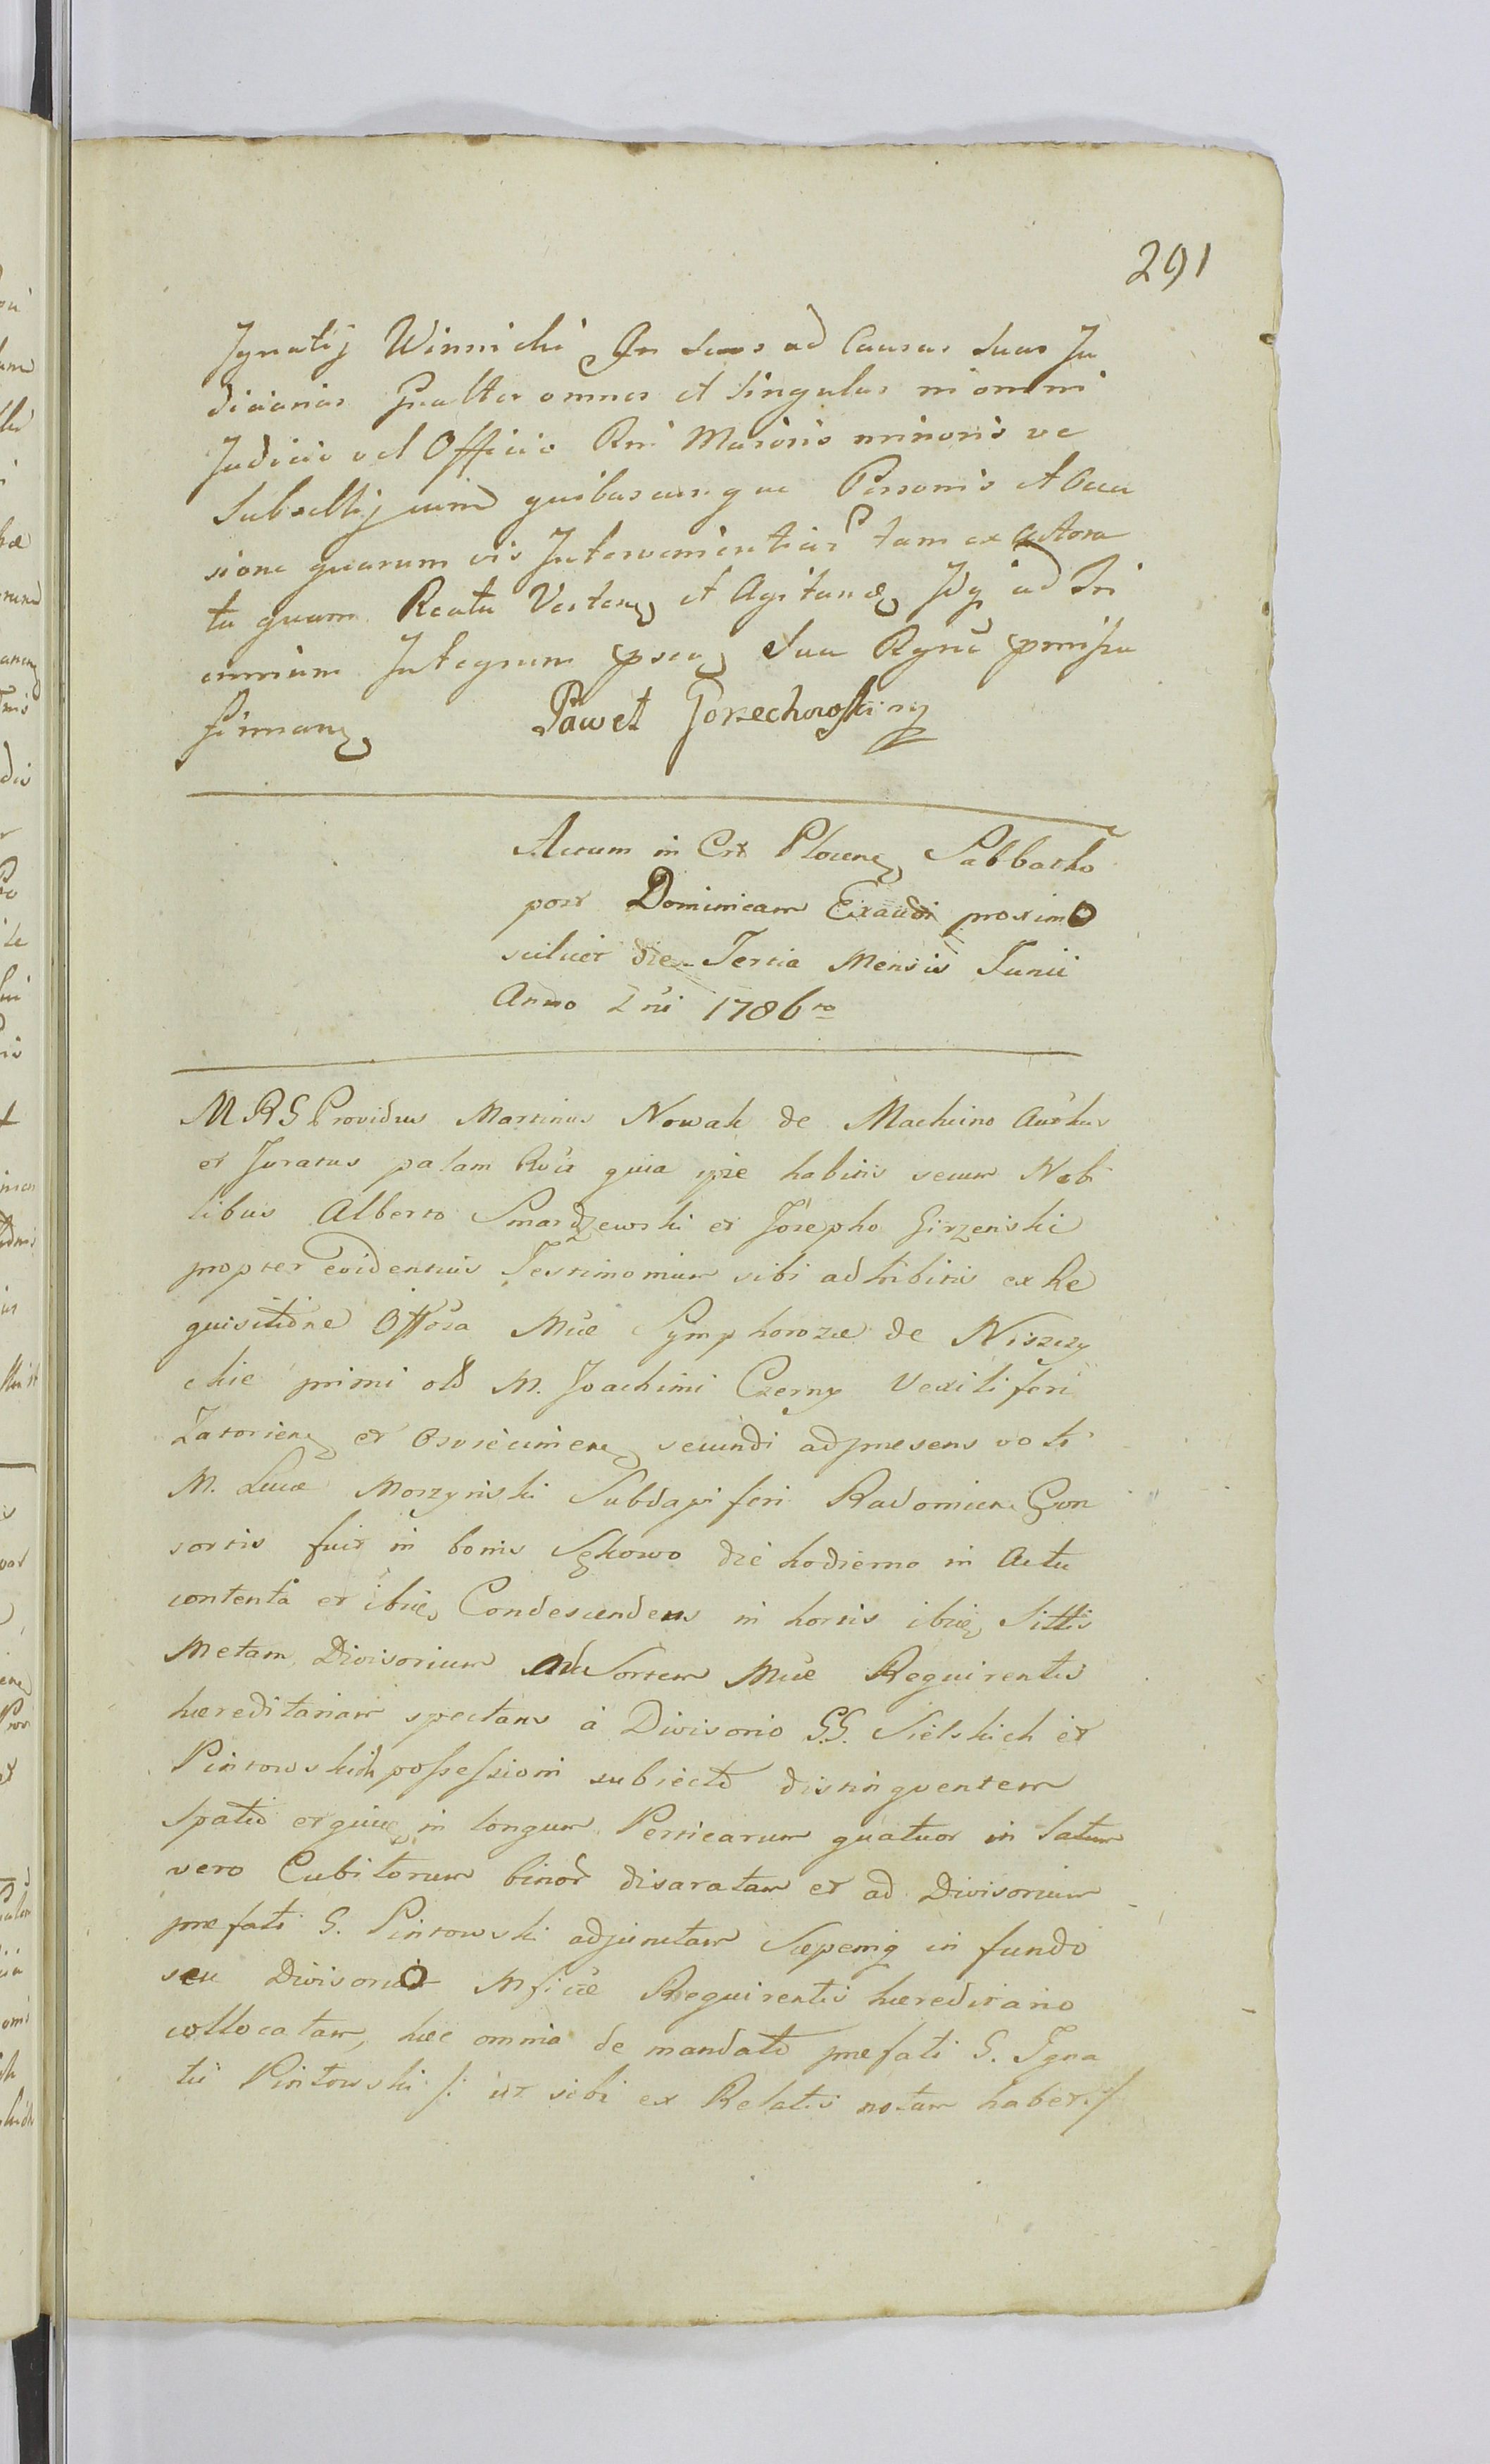 291
Ignatij Winnicki In suos ad Causas suas Ju
diciarias gnalter omnes et singulas in omni
Judicio vel Officio Rni Maioris minoris ve
Subsellij cum quibuscunque Personis et Occa
sione quarum vis Intervenientiar tam ex actora
tu quam Reatu Verten et Agitand Idq ad Tri
ennium Integrum psen sua Rgne pmissa
firman
Paweł Gorzechowski mp
Actum in Cro Plocen Sabbatho
post Dominicam Exaudi proximo
scilicet die Tertia Mensis Junii
Anno Dni 1786to
M RG Providus Martinus Nowak de Machcino Authus
et Juratus palam Rcit quia ipse habitis secum Nobi
libus Alberto Smardzewski et Josepho Girzenski
propter evidentius Testimonium sibi adhibitis ex Re
quisitione Offosa Mcae Symphorozae de Niszczy
ckie primi olb M. Joachimi Czerny Vexiliferi
Zatorien et Osviecimien secundi ad praesens voti
M. Lucae Morzyński Subdapiferi Radomien Con
sortis fuit in bonis Sękowo die hodierno in Actu
contenta et ibiq Condescendens in hortis ibiq Sittis
Metam Divisorium ad Sortem Mcae Requirentis
haereditariam spectans a Divisorio G.G. Sielskich et
Pintowskich possessioni subiecto distinguentem
Spatio in longum Perticarum quatuor in latum
vero Cubitorum binor disaratam et ad Divisorium
praefati G. Pintowski adjunctam Saepemq in fundo
seu Divisorio Mficae Requirentis haereditario
collocatam, haec omnia de mandato praefati G. Igna
tii Pintowski /: ut sibi ex Relatis notum habet :/